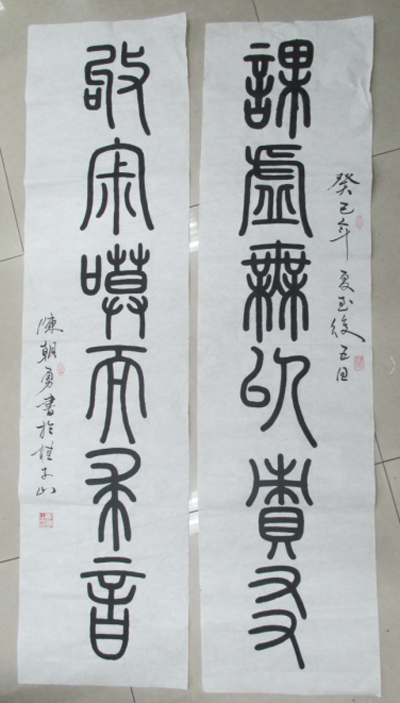 癸巳年夏至後五日
課虛無以責有
敂寂嗼而求音
陳朝勇書於桂子山